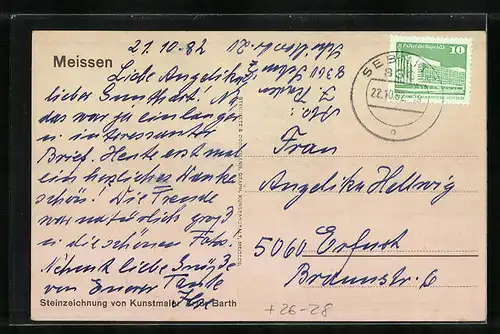 Meissen
21.10.82
Liebe Angelika,
lieber Gunthart! Na,
das war ja ein langer
u. interessanter
Brief. Heute erst mal
ein herzliches Danke-
schön! Die Freude
war natürlich groß
u. die schönen Fotos!
Nehmt liebe Grüße
von Eurer Tante
Steinzeichnung von Kunstmaler Barth
Abs.:
8360 Sebnitz
Palast der Republik
10
22.10.82
Frau
Angelika Hellwig
5060 Erfurt
Braunstr. 6
+26-28